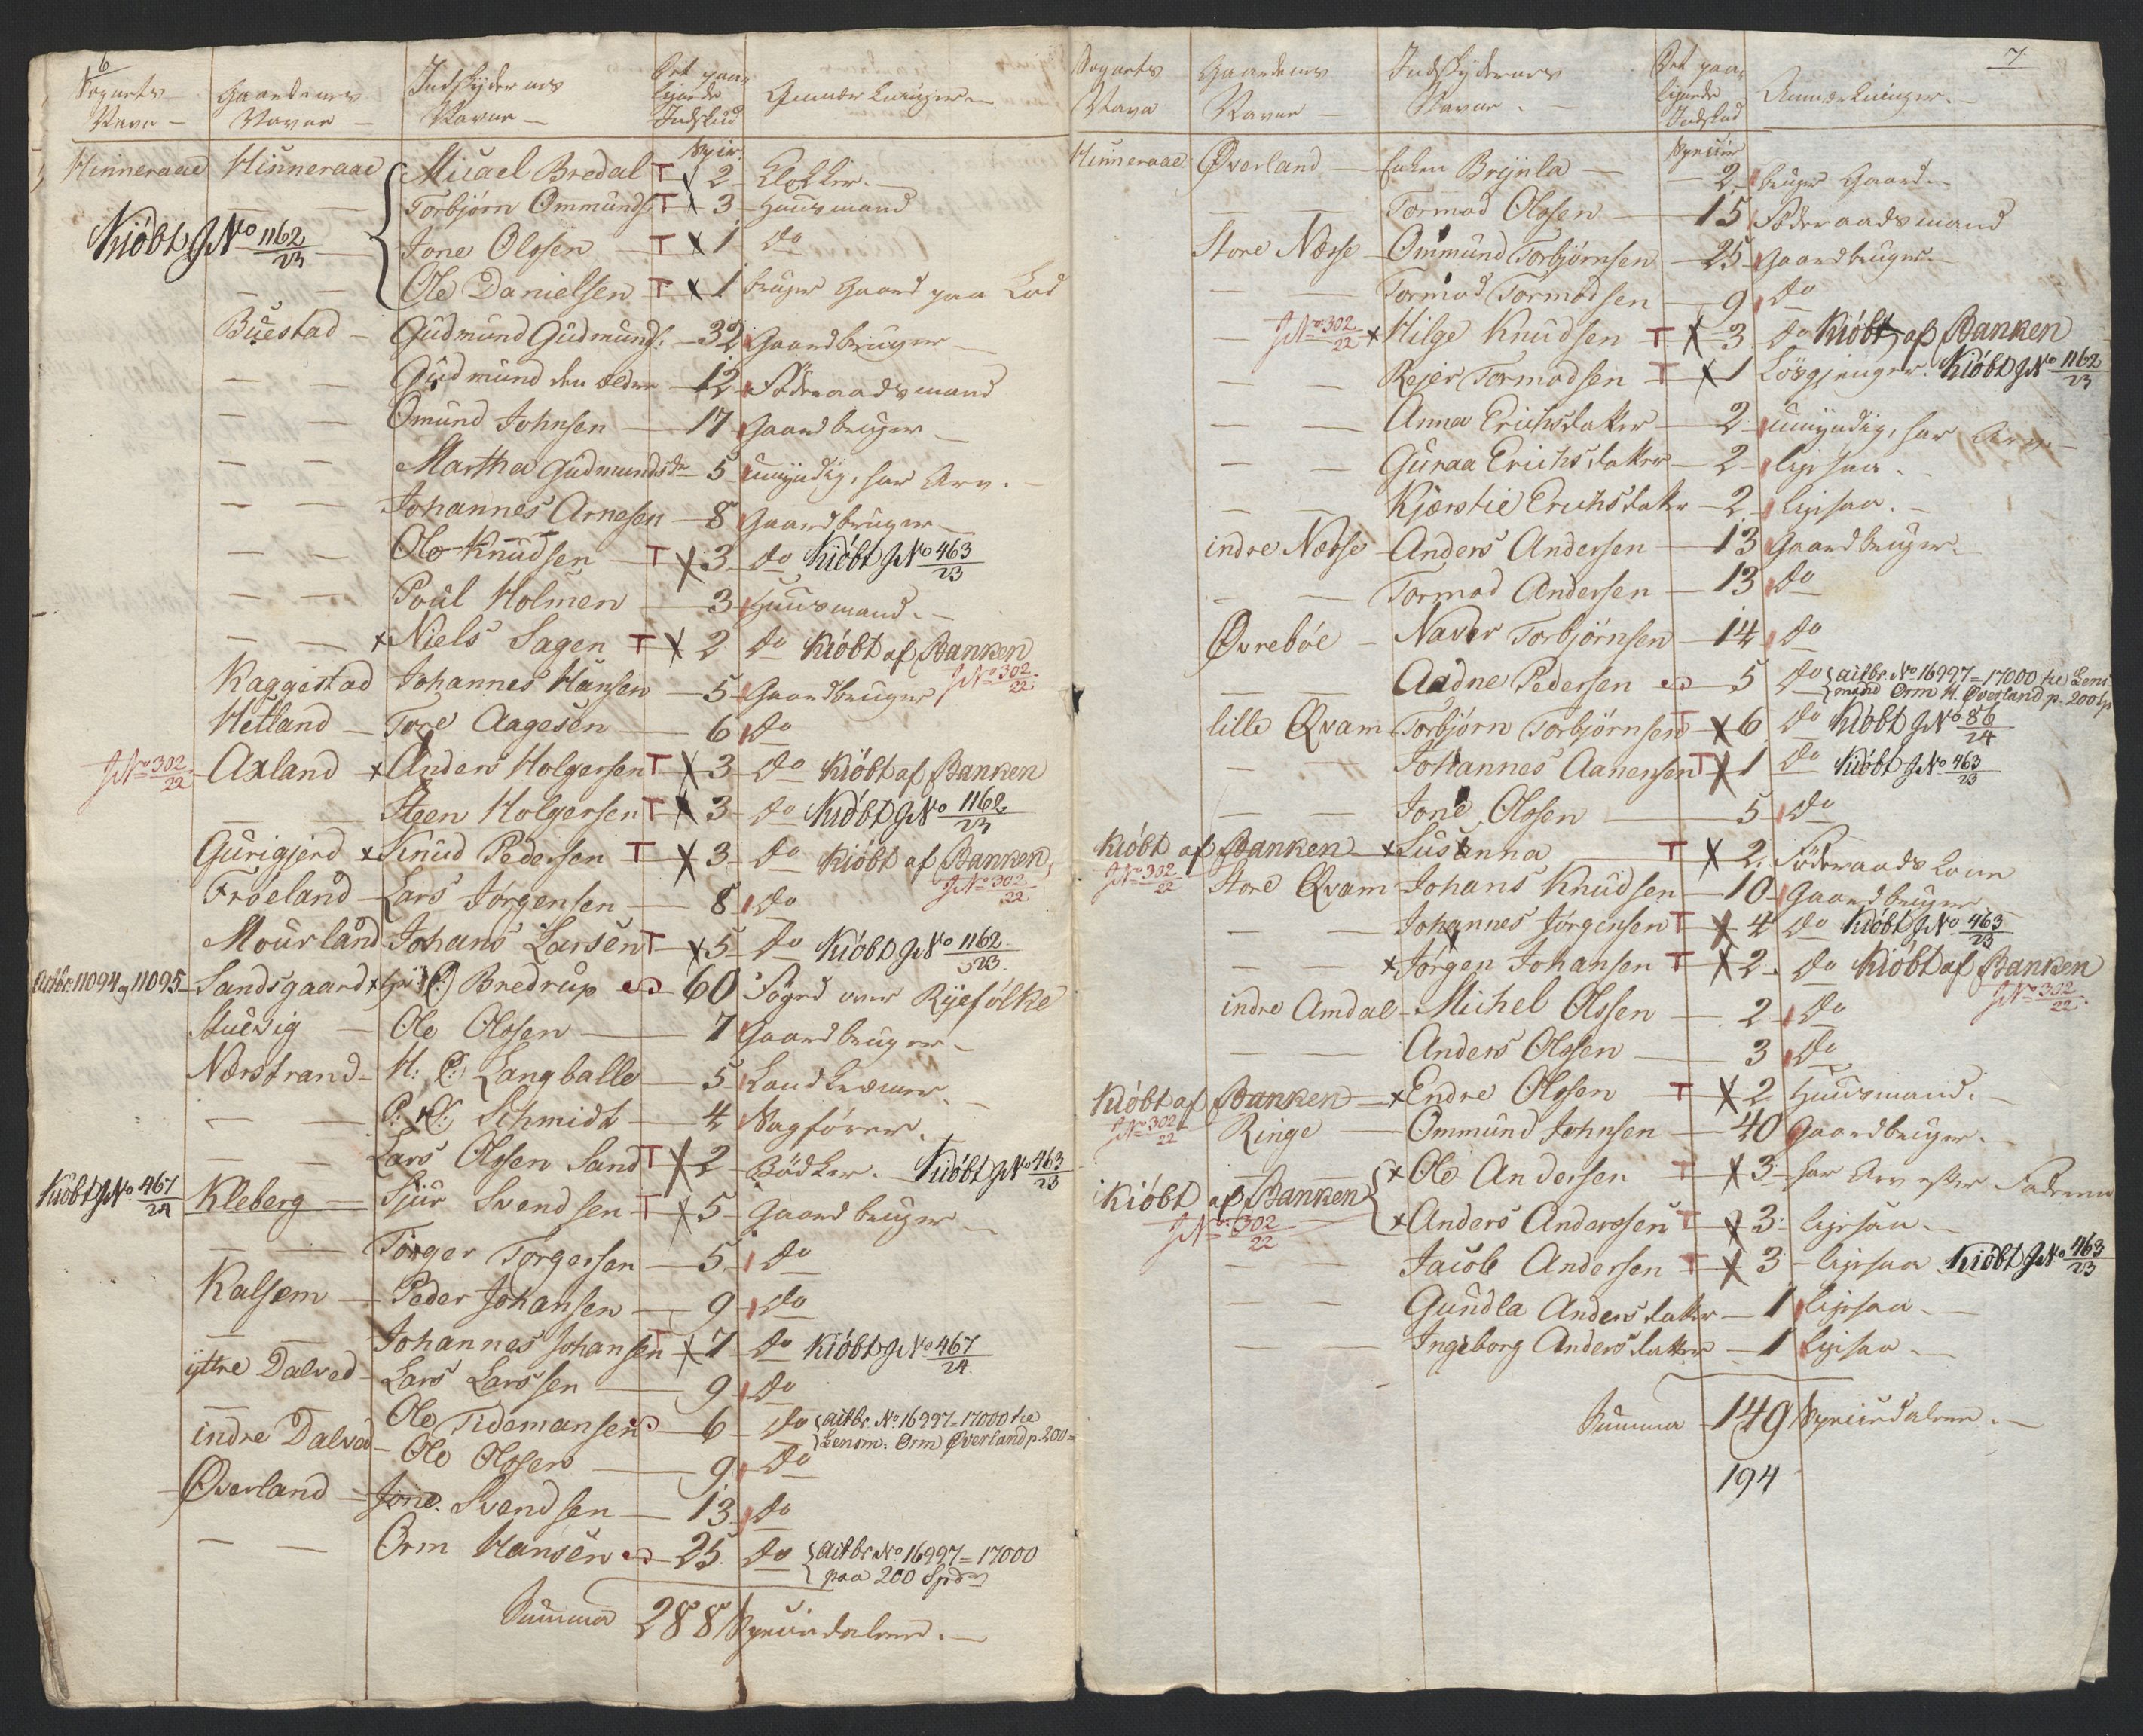 6
Sognets Navn — Gaardenes Navne — Indskydernes Navne — Det paaligende Indskud Anmærkninger —
Spir:
Hinneraae Hinneraae Micael Bredal T x 2 Klokker. —
— — Torbjørn Ommunds: T x 3 Huusmand
Kiöbt J.No 1162/23 Jone Olssen T x 1 do
— — Ole Danielsen T x 1 bruger Gaard paa Lod
Buestad — Gudmund Gudmunds: — 32 Gaardbruger —
— — Gudmund den ældre — 12 Föderaadsmand
— — Omund Johnsen — 17 Gaardbruger —
— — Martha Gudmundsdr — 5 umyndig, har Arv. —
— — Johannes Arnesen — 8 Gaardbruger —
— — Ole Knudsen T x 3 do Kiöbt J.No 463/23
— — Poul Holmen — 3 Huusmand. —
— — x Niels Sagen T x 2 do Kiöbt af Banken
Raggestad Johannes Hansen — 5 Gaardbruger J.No 302/22
Hetland — Tore Aagesen — 6 do
J.No 302/22 Axland x Anders Holgersen T x 3 do Kiöbt af Banken
— — Steen Holgersen T x 3 do Kiöbt J.No 1162/23
Gurigjerd x Knud Pedersen T x 3 do Kiöbt af Banken,
Fröeland Lars Jørgensen — 8 do J.No 302/22
Mourland Johans Larsen T x 5 do Kiöbt J.No 1162/23.
Actbr. 11094 og 11095 Sandsgaard P: Bredrup — 60 Foged over Ryefölke
Stuevig — Ole Olssen — 7 Gaardbruger —
Nærstrand — H: P: Langballe — 5 Landkræmer. —
— — P: H: Schmidt — 4 Sagfører.
— — Lars Olssen Sand T x 2 Bödker. Kiöbt J.No 463/23
Kiöbt J.No 467/24 Kleberg — Sjur Svendsen T x 5 Gaardbruger —
— — Torger Torgersen — 5 do
Kalsem — Peder Johansen — 9 do
— — Johannes Johansen T x 7 do Kiöbt J.No 467/24.
yttre Dalved Lars Larssen — 9 do
— Ole Tidemansen — 6 do actbr. No 16997 = 17000 til
Lensm. Orm Øverland p. 200 =
indre Dalved Ole Olssen — 9 do
Øverland — Jone Svendsen — 13 do
— — Orm Hansen — 25. do actbr No 16997 = 17000
paa 200 Spdr
Summa 288 Speciedaler. —
7
Sognets Navn Gaardenes Navne — Indskydernes Navne — Det paaligende Indskud Anmærkninger. —
Specier
Hinneraae Øverland — Enken Brynla — 2 bruger Gaard. —
— — Tormod Olssen — 15 Föderaadsmand
Store Nærse — Ommund Torbjørnsen — 25 Gaardbruger. —
— — Tormod Tormodsen — 9 do
— J.No 302/22 x Hilge Knudsen T x 3 do Kiöbt af Banken
— — Rejer Tormodsen T x 1 Lösgjenger. Kiöbt J.No 1162/23
— — Anna Erichsdatter — 2 umyndig, har Arv. —
— — Guraa Erichsdatter — 2 ligesaa. —
— — Kjærstie Erichsdatter — 2 ligesaa. —
indre Nærse — Anders Andersen — 13 Gaardbruger. —
— — Tormod Andersen — 13 do
Øvreböe — Naver Torbjørnsen — 14 do
— — Aadne Pedersen — 5 do actbr. No 16997 = 17000 til Lens
mand Orm H. Øverland p. 200 Sp
lille Qvam Torbjørn Torbjørnsen T x 6 do Kiöbt J.No 86/24
— — Johannes Aanensen T x 1 do Kiöbt J.No 463/23
— — Jone Olssen — 5 do
Kiöbt af Banken x Susanna T x 2. Föderaads Kone
J.No 302/22 Store Qvam Johans Knudsen — 10 Gaardbruger
— — Johannes Jørgensen T x 4 do Kiöbt J.No 463/23
— — x Jørgen Johansen T x 2. do Kiöbt af Banken
J.No 302/22.
indre Amdal — Michel Olssen — 2 do
— — Anders Olssen — 3 do
Kiöbt af Banken — x Endre Olssen T x 2 Huusmand. —
J.No 302/22 Ringe — Ommund Johnsen — 40 Gaardbruger. —
x Ole Andersen T x 3 har Arv efter Faderen
Kiöbt af Banken
J.No 302/22 x Anders Anderssen T x 3. ligesaa. —
— — Jacob Andersen T x 3 — ligesaa Kiöbt J.No 463/23
— — Gundla Andersdatter — 1 ligesaa. —
— — Ingeborg Andersdatter — 1 ligesaa —
Summa 149 Speciedaler. —
194